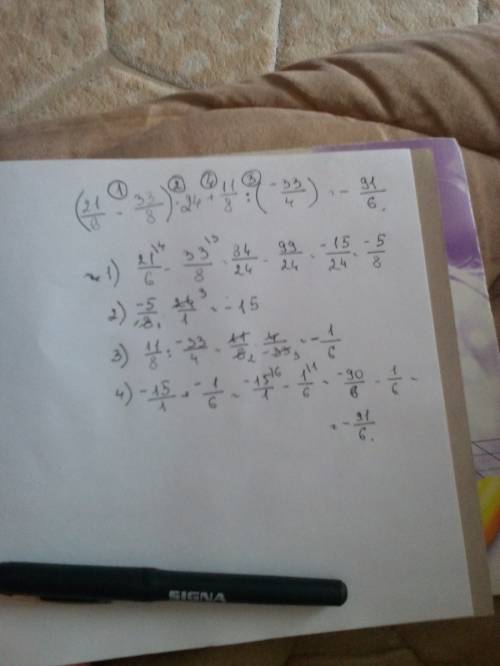 ① ② ④ ③
(21/6 - 33/8) · 24 + 11/8 : (-33/4) = - 91/6.
1) 21/6 - 33/8 = 84/24 - 99/24 = -15/24 = -5/8
2) -5/8 · 24/1 = -15
3) 11/8 : -33/4 = 11/8 · 4/-33 = -1/6
4) -15/1 + -1/6 = -15/1 - 1/6 = -90/6 - 1/6 =
= -91/6.
SIGNA